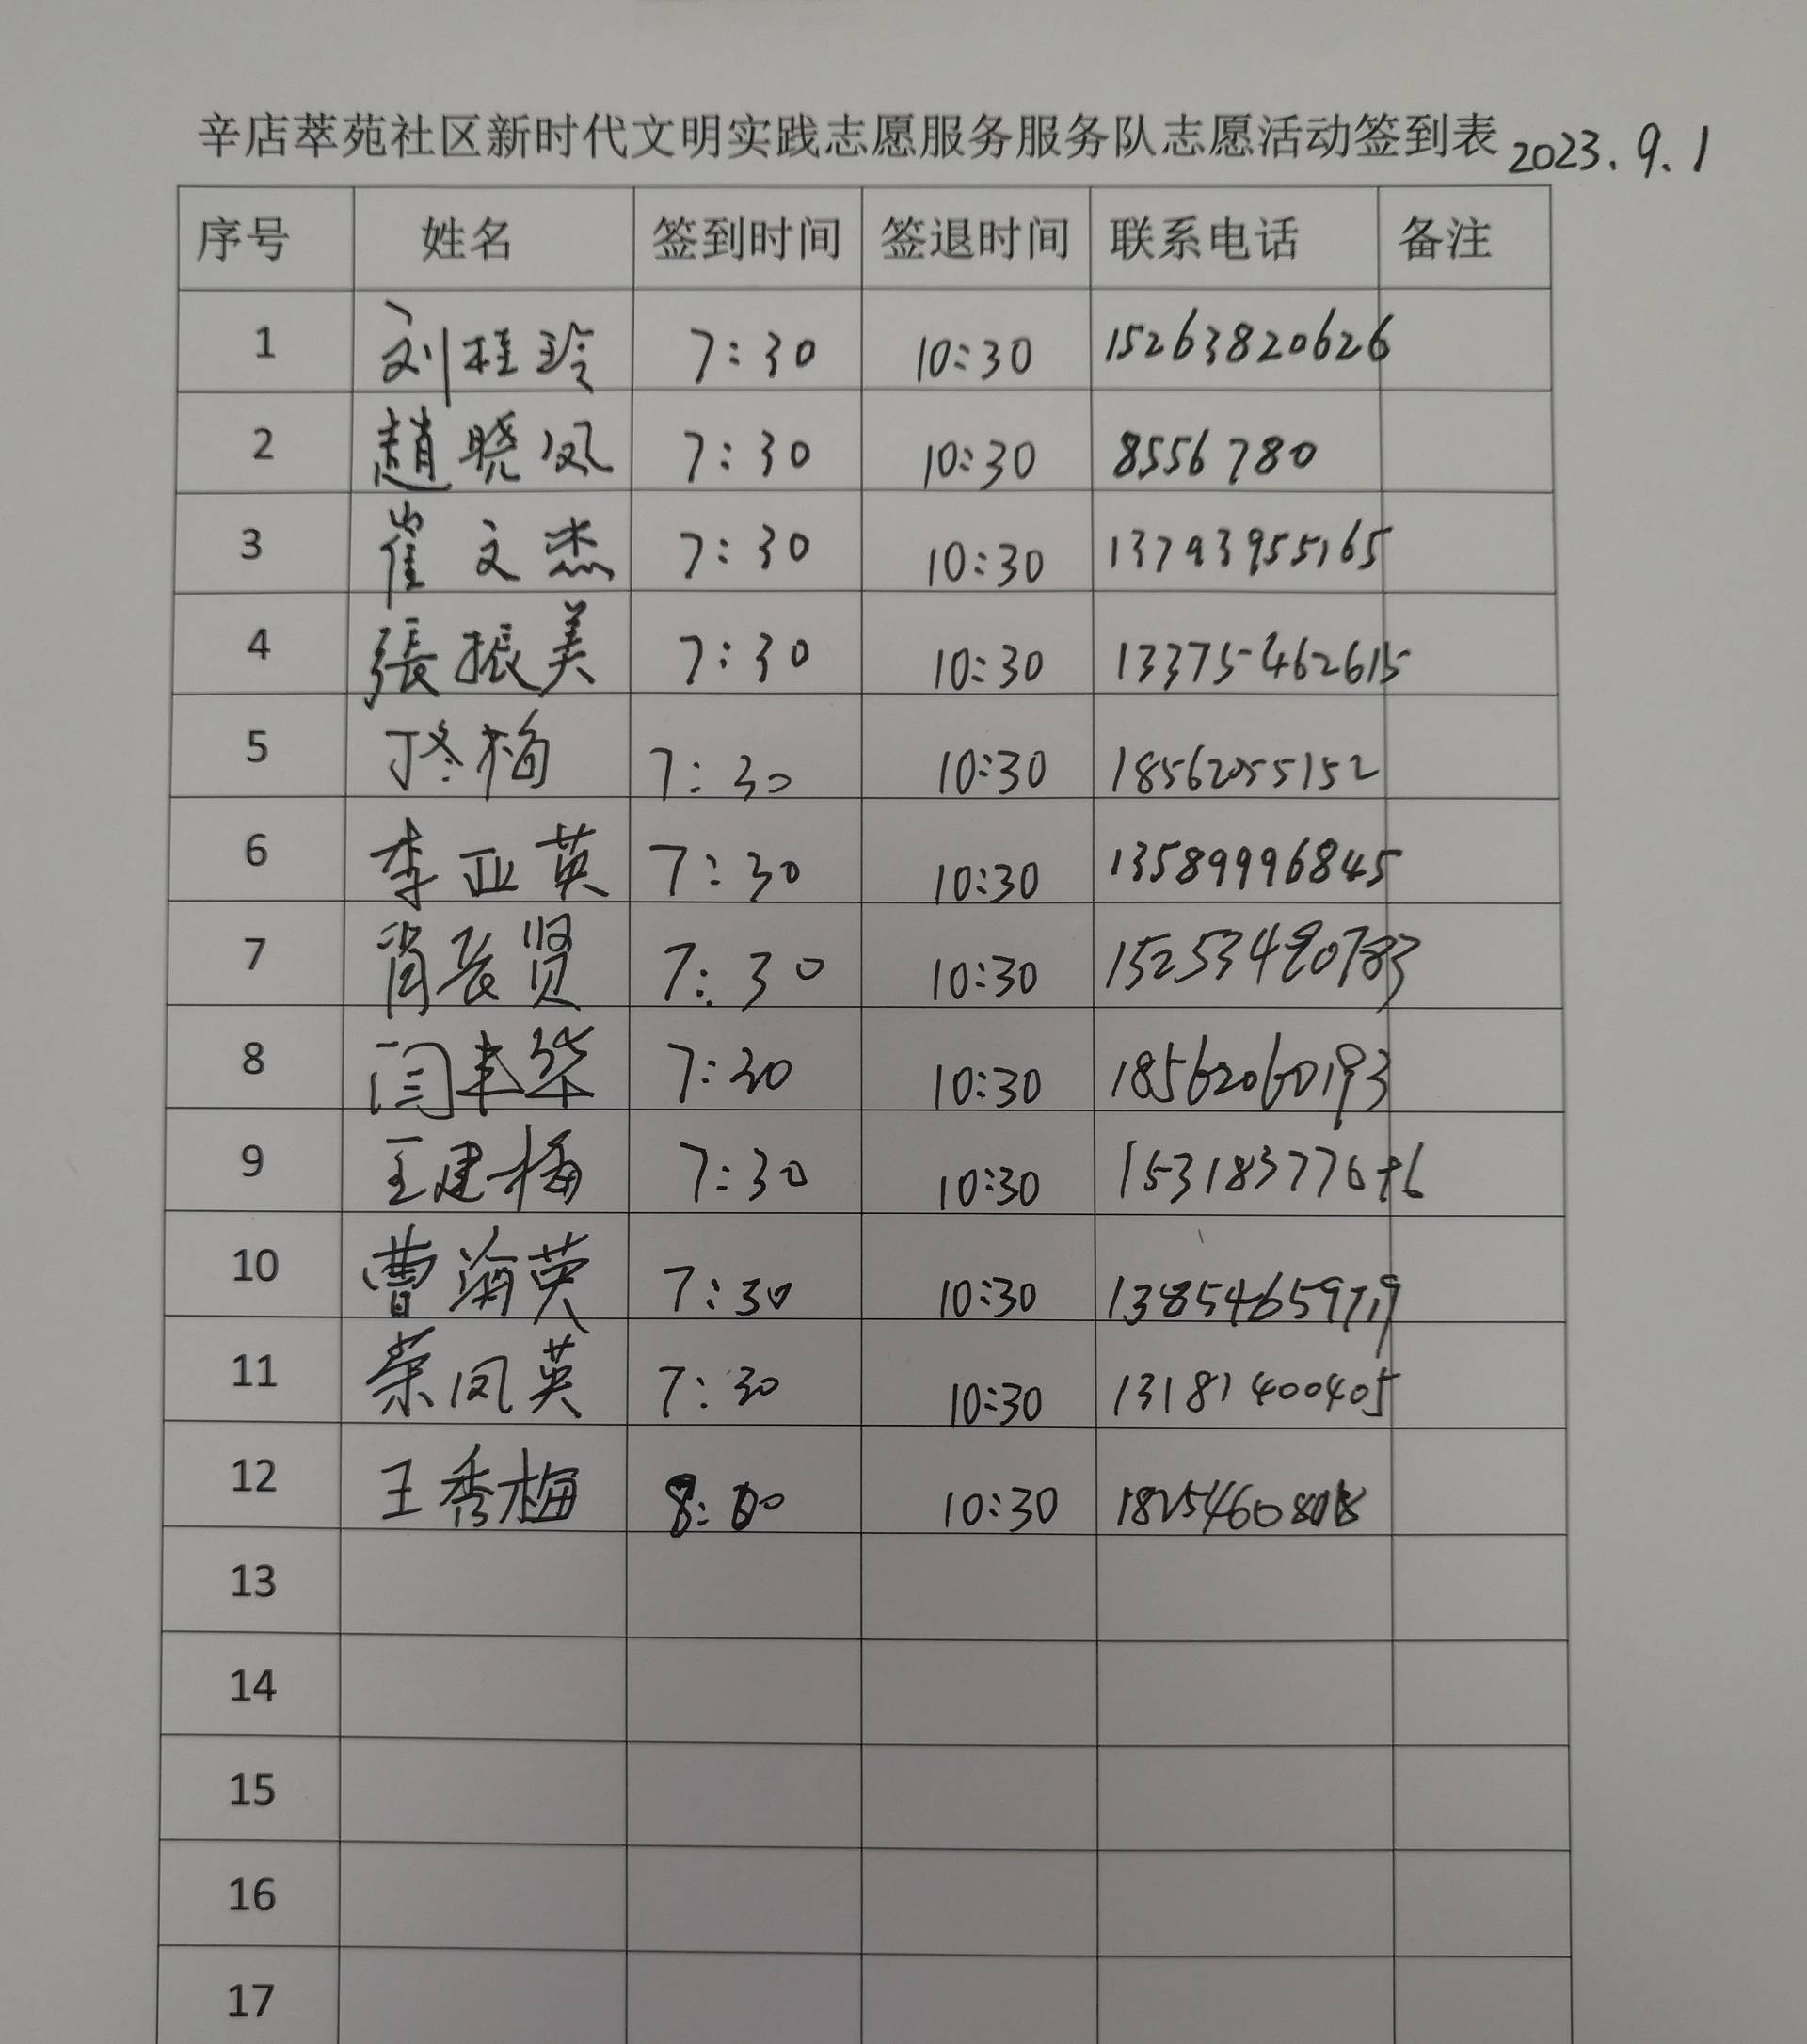 辛店萃苑社区新时代文明实践志愿服务服务队志愿活动签到表 2023.9.1
序号 姓名 签到时间 签退时间 联系电话 备注
1 刘桂玲 7:30 10:30 15263820626
2 趙晓凤 7:30 10:30 8556780
3 崔文杰 7:30 10:30 13793955165
4 張振美 7:30 10:30 13375462615
5 丁冬梅 7:30 10:30 18562055152
6 李亚英 7:30 10:30 13589996845
7 肖长贤 7:30 10:30 15253490783
8 闫丰华 7:30 10:30 18562060193
9 王建梅 7:30 10:30
10 曹海英 7:30 10:30
11 荣凤英 7:30 10:30 13181400405
12 王秀梅 8:00 10:30
13
14
15
16
17